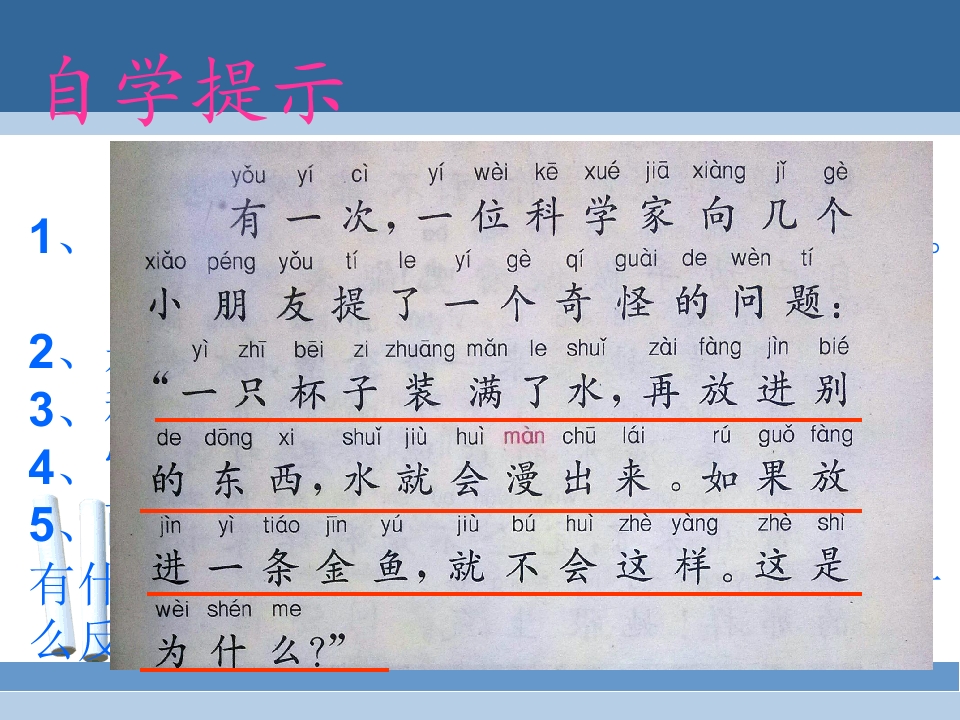 自学提示
yǒu yí cì yí wèi kē xué jiā xiàng jǐ gè
有一次，一位科学家向几个
xiǎo péng yǒu tí le yí gè qí guài de wèn tí
小朋友提了一个奇怪的问题：
yì zhī bēi zi zhuāng mǎn le shuǐ zài fàng jìn bié
“一只杯子装满了水，再放进别
de dōng xi shuǐ jiù huì màn chū lái rú guǒ fàng
的东西，水就会漫出来。如果放
jìn yì tiáo jīn yú jiù bú huì zhè yàng zhè shì
进一条金鱼，就不会这样。这是
wèi shén me
为什么？”
1、
2、
3、
4、
5、
有什
么反